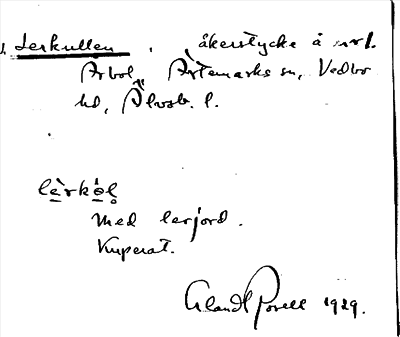 Lerkullen, åkerstycke å
Årbol, Ärtemarks sn, Vedbo
hd, Älvsb. l.
lèrkǿl̥
med lerjord.
Kuperat.
1929.